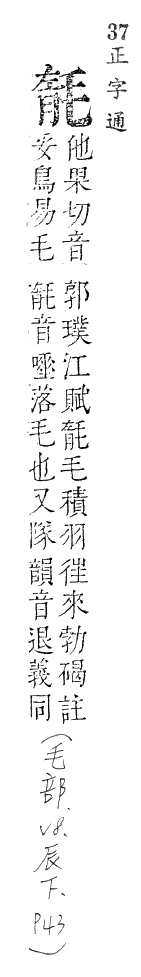 37
正字通
毻
他果切音
妥鳥易毛
郭璞江賦毻毛積羽徃來勃碣註
毻音唾落毛也又隊韻音退義同
(毛部.V8.辰下.P43)